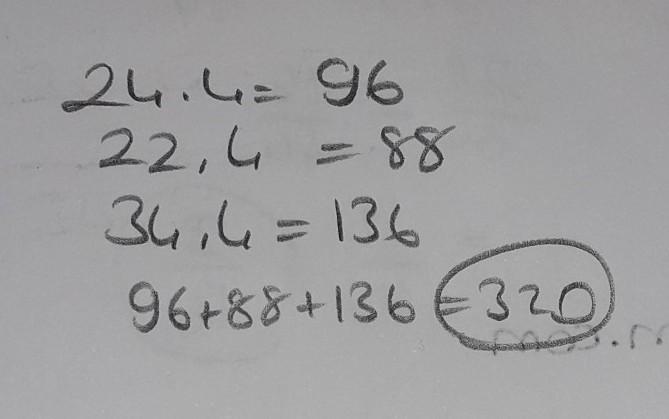 24.4= 96
22,4 = 88
34,4 = 136
96+88+136 =320